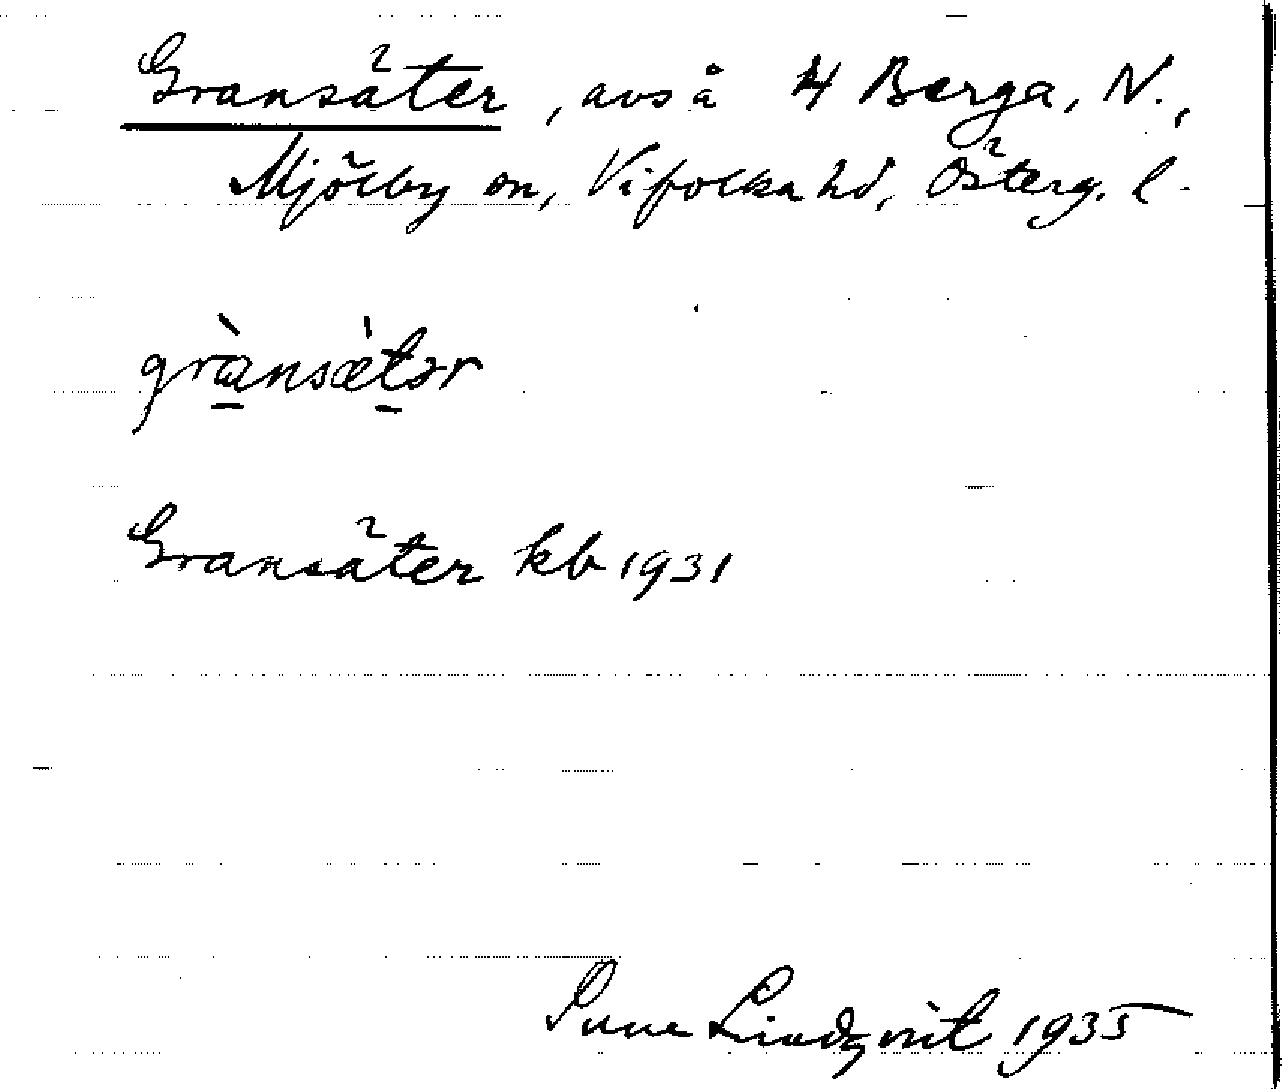 Gransäter, avs å 4 Berga, N.,
Mjölby sn, Vifolka hd, Österg. l.
grànsæ̀tər
Gransäter kb 1931
Sune Lindqvist 1935